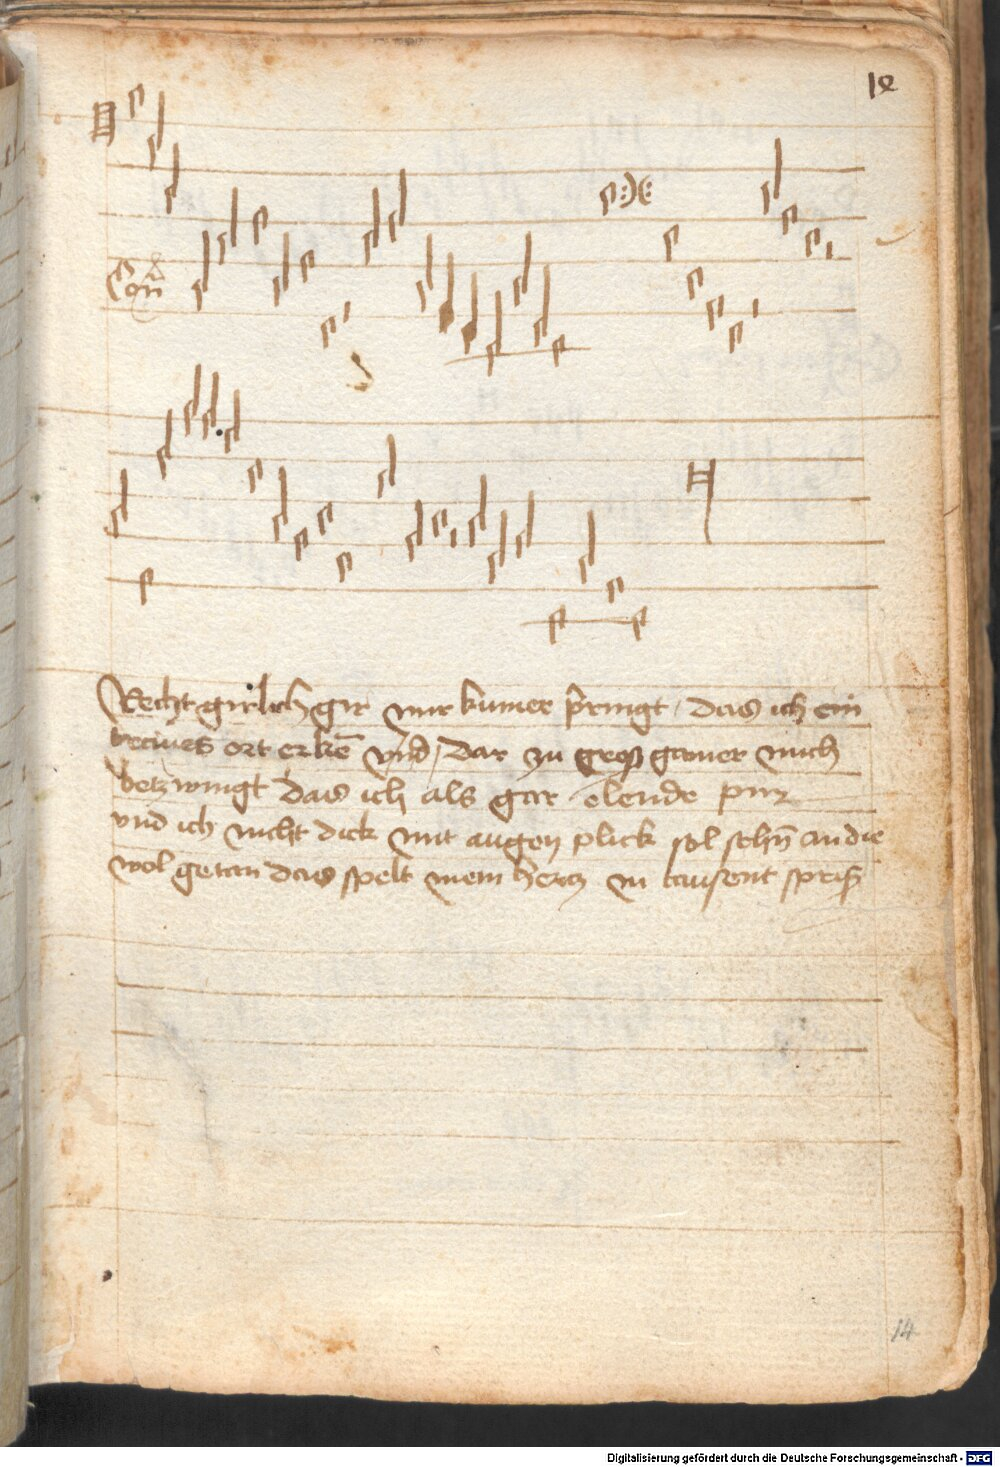 12
Con
Recht girlich gir mir kumer pringt / das ich ein
ort erken vnd / dar zu gros gamer mich
betzwingt das ich als gar elende pin
vnd ich nicht dick mit augen plick sol sehn an die
wol getan das spelt mein hertz in tausent
14
Digitalisierung gefördert durch die Deutsche Forschungsgemeinschaft - DFG